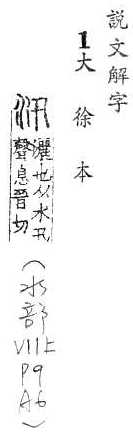 說文解字
1大徐本
汛 灑也从水卂
聲息晉切
(水部
VII上
P9
A6)